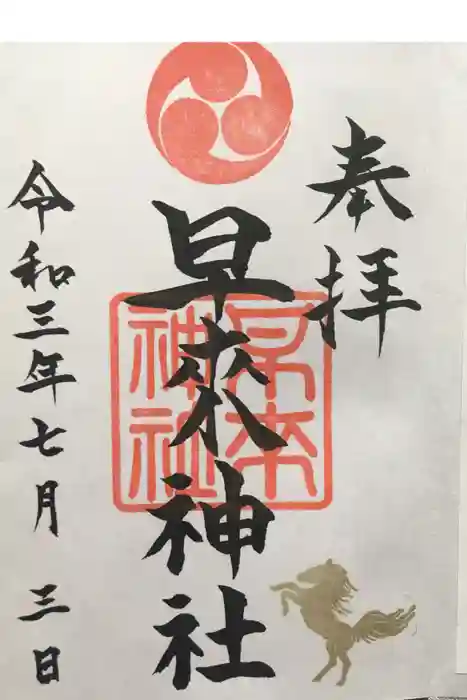 奉拝
早來神社
早来
神社
令和三年七月三日